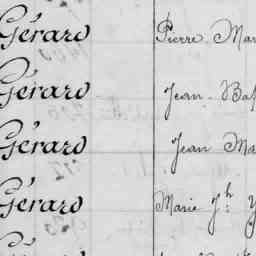 Gérard Pierre Mar
Gérard Jean Bap
Gérard Jean Ma
Gérard Marie Jh